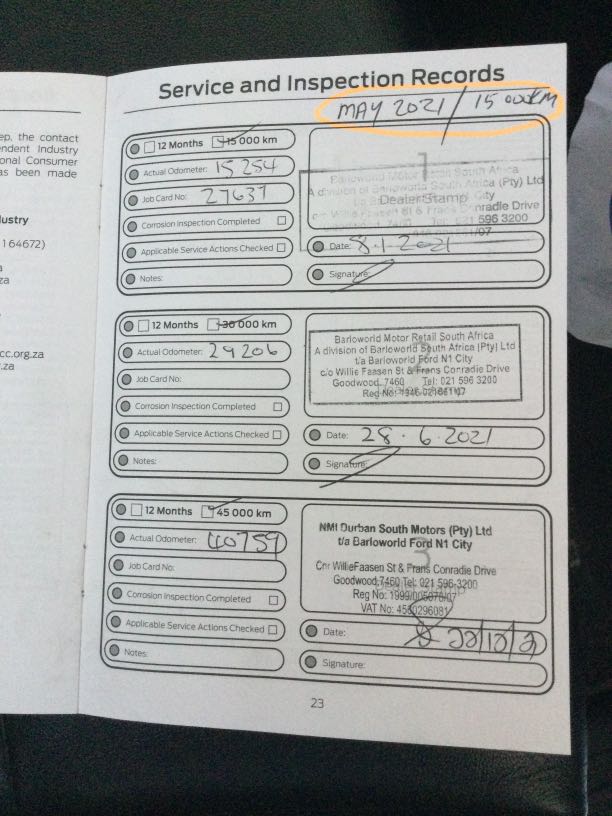 ep, the contact
endent Industry
onal Consumer
as been made
ustry
164672)
a
za
cc.org.za
.za
Service and Inspection Records
MAY 2021 / 15 000KM
12 Months 15 000 km
Actual Odometer: 15 254
Job Card No: 27637
Corrosion Inspection Completed
Applicable Service Actions Checked
Notes:
1
Barloworld Motor Retail South Africa
A division of Barloworld South Africa (Pty) Ltd
t/a Barloworld City
Dealer Stamp
c/o Willie Faasen St & Frans Conradie Drive
021 596 3200
Date: 8.1.2021
Signature:
12 Months 30 000 km
Actual Odometer: 29 206
Job Card No:
Corrosion Inspection Completed
Applicable Service Actions Checked
Notes:
Barloworld Motor Retail South Africa
A division of Barloworld South Africa (Pty) Ltd
t/a Barloworld Ford N1 City
c/o Willie Faasen St & Frans Conradie Drive
Goodwood, 7460 Tel: 021 596 3200
Reg No:
2
Date: 28.6.2021
Signature:
12 Months 45 000 km
Actual Odometer: 40759
Job Card No:
Corrosion Inspection Completed
Applicable Service Actions Checked
Notes:
NMI Durban South Motors (Pty) Ltd
t/a Barloworld Ford N1 City
3
Cnr WillieFaasen St & Frans Conradie Drive
Goodwood,7460 Tel: 021 596-3200
Reg No: 1999/005078/07
VAT No: 4580296081
Date: 22/12/21
Signature:
23